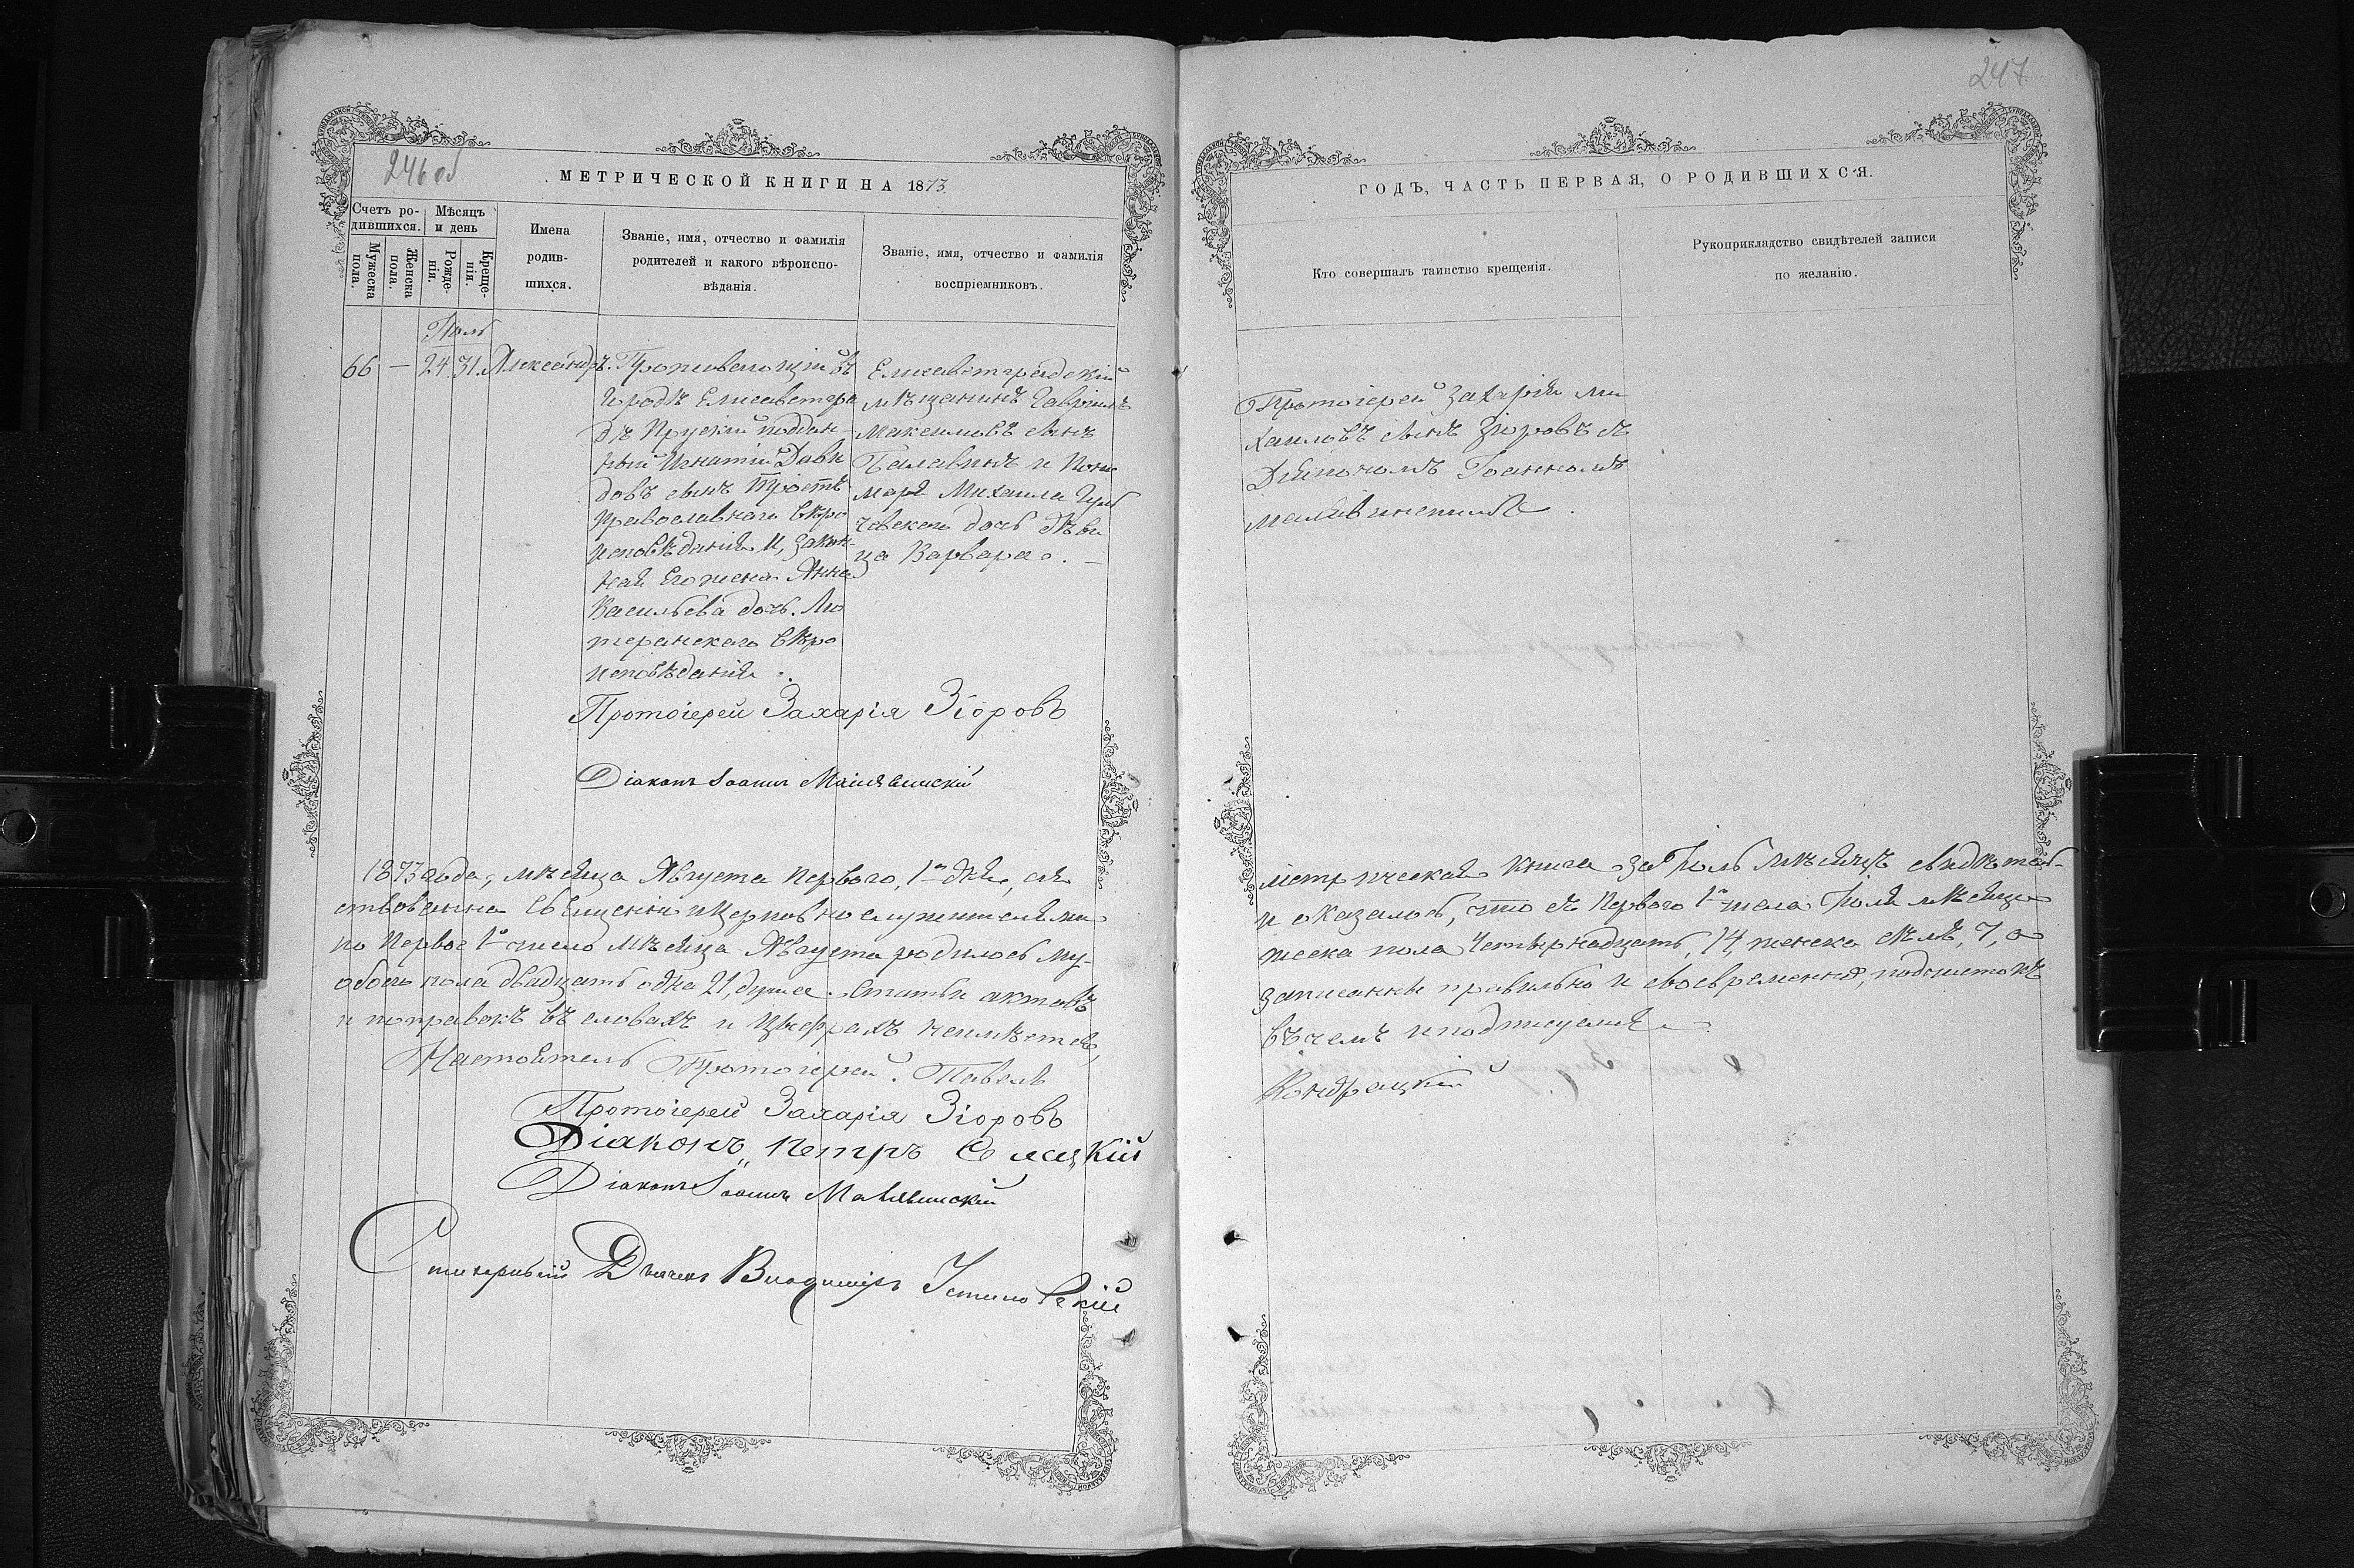 246 об
МЕТРИЧЕСКОЙ КНИГИ НА 1873
Счетъ ро-
дившихся.
Мѣсяцъ
и день
Мужеска
пола.
Женска
пола.
Рожде-
нія.
Креще-
нія.
Имена
родив-
шихся.
Званіе, имя, отчество и фамилія
родителей и какого вѣроиспо-
вѣданія.
Званіе, имя, отчество и фамилія
воспріемниковъ.
Іюль
66 — 24. 31. Александръ.
Проживающій въ
городѣ Елисаветгра
дѣ Прускій поддан-
ный Игнатій Дави
довъ сынъ
Православнаго вѣро
исповѣданія и, закон-
ная его жена Анна
Васильева дочь. Лю
теранскаго вѣро
исповѣданія.
Елисаветградскій
мѣщанинъ Гавріилъ
Максимовъ сынъ
Балавинъ и Поно
маря Михаила
дочь дѣви
ца Варвара. —
Протоіерей Захарія Зіоровъ
Діаконъ Іоаннъ Малявинскій
1873 года, мѣсяца Августа перваго, 1го дня, сія
ствованна Священно и церковнослужителями
по первое 1е число мѣсяца Августа родилось му-
обоего пола двадцать одна 21, душа. Статьи актовъ
и поправокъ въ словахъ и цыфрахъ неимѣется,
Настоятель Протоіерей. Павелъ
Протоіерей Захарія Зіоровъ
Діаконъ Петръ
Діаконъ Іоаннъ Малявинскій
Стихарный Дьячекъ Владиміръ Устиновскій
247
ГОДЪ, ЧАСТЬ ПЕРВАЯ, О РОДИВШИХСЯ.
Кто совершалъ таинство крещенія.
Рукоприкладство свидѣтелей записи
по желанію.
Протоіерей Захарія Ми
хаиловъ сынъ Зіоровъ съ
Діякономъ Іоанномъ
Малявинскимъ.
метрическая книга за Іюль мѣсяцъ свидѣтель-
и оказалось, что съ перваго 1го числа Іюля мѣсяца
жеска пола четырнадцать, 14, женска семь, 7, а
записанны правильно и своевременно, подчистокъ
въ чемъ и подписуемся
Кондрацкій